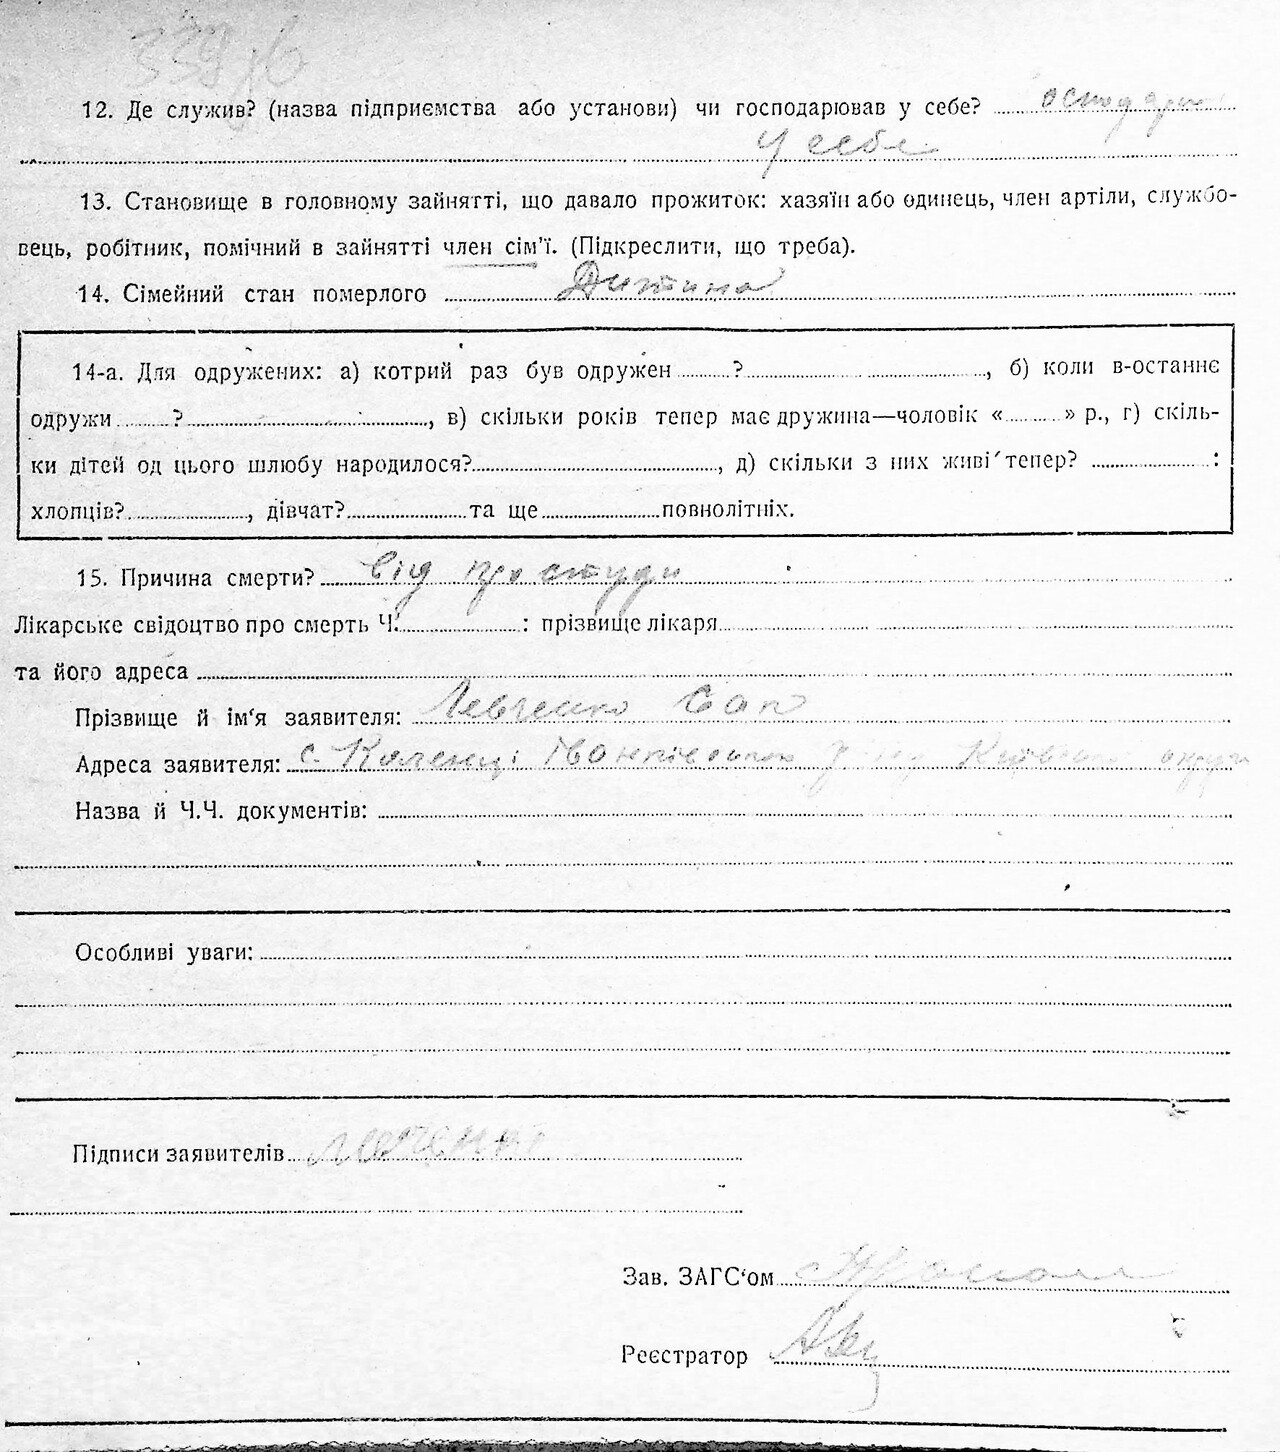 339 зв
12. Де служив? (назва підприємства або установи) чи господарював у себе? осподарю
у себе
13. Становище в головному зайнятті, що давало прожиток: хазяїн або одинець, член артіли, службо-
вець, робітник, помічний в зайнятті член сім'ї. (Підкреслити, що треба).
14. Сімейний стан померлого Дитина
14-а. Для одружених: а) котрий раз був одружен ? , б) коли в-останнє
одружи ? , в) скільки років тепер має дружина—чоловік « » р., г) скіль-
ки дітей од цього шлюбу народилося? , д) скільки з них живі тепер? :
хлопців? , дівчат? та ще повнолітніх.
15. Причина смерти? від простуди
Лікарське свідоцтво про смерть Ч. : прізвище лікаря
та його адреса
Прізвище й ім'я заявителя: Левченко
Адреса заявителя: с. Каленці Іванківського р-ну Київсько округи
Назва й Ч.Ч. документів:
Особливі уваги:
Підписи заявителів
Зав. ЗАГС'ом
Реєстратор